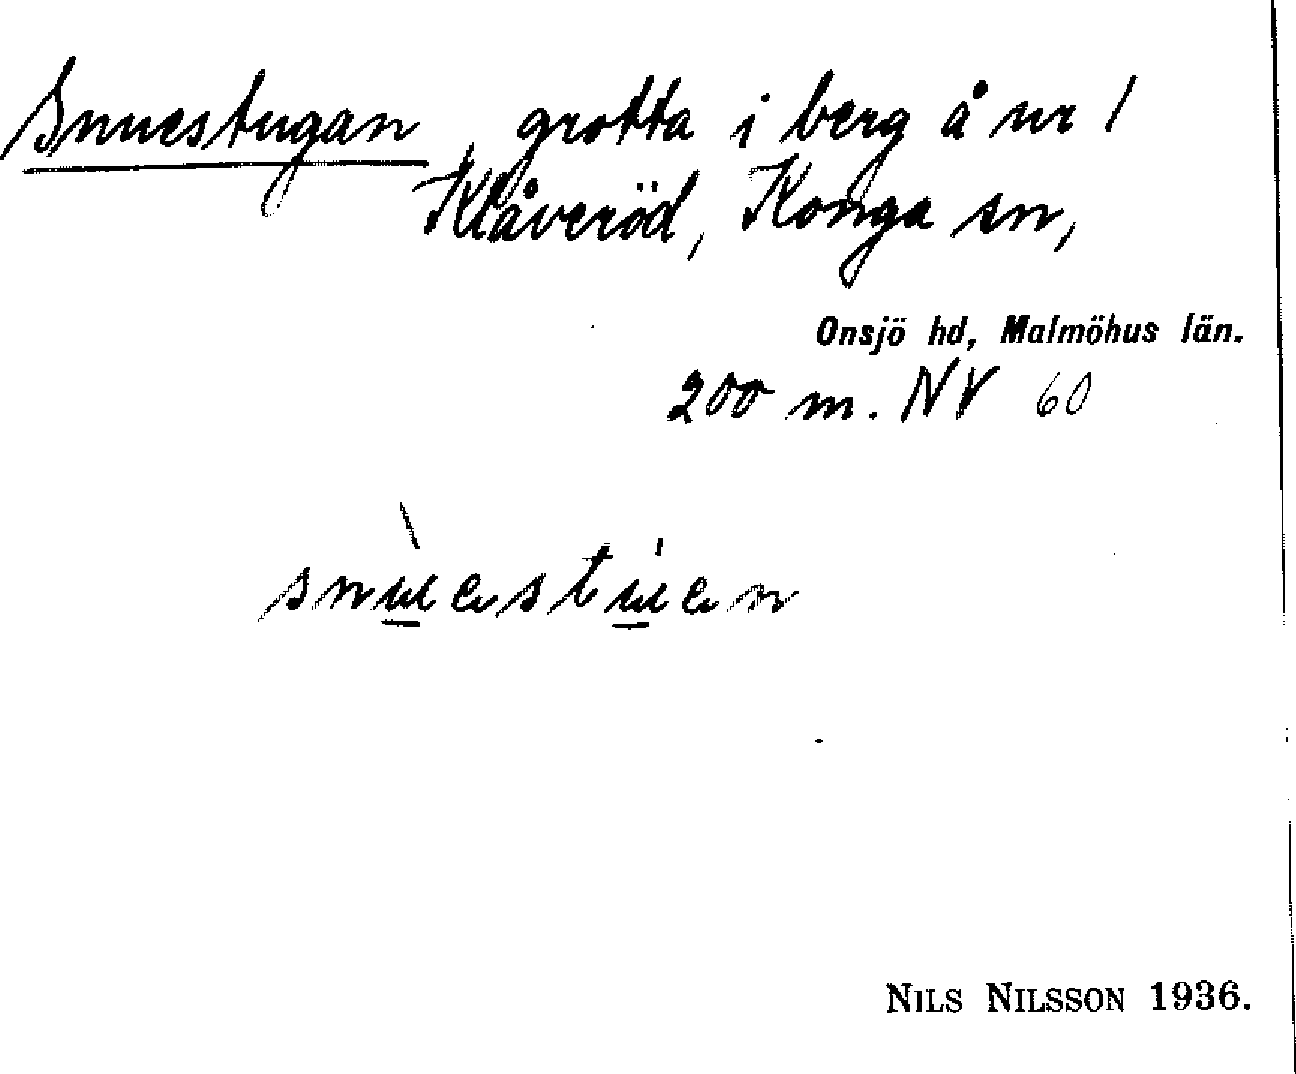 Snuestugan, grotta i berg å ur 1
Klåveröd, Konga sn,
Onsjö hd, Malmöhus län.
200 m. NV 60
snùestúen
NILS NILSSON 1936.